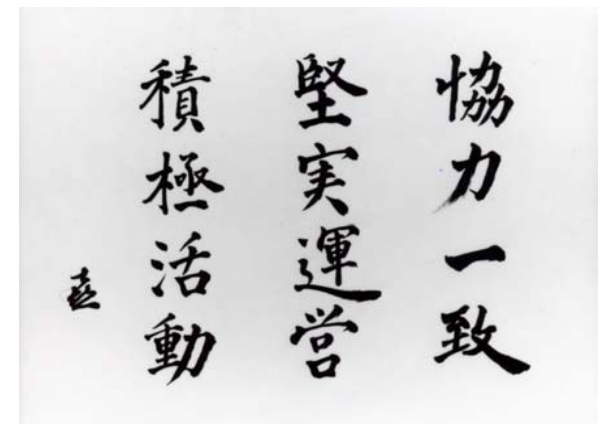 恊力一致
堅実運営
積極活動